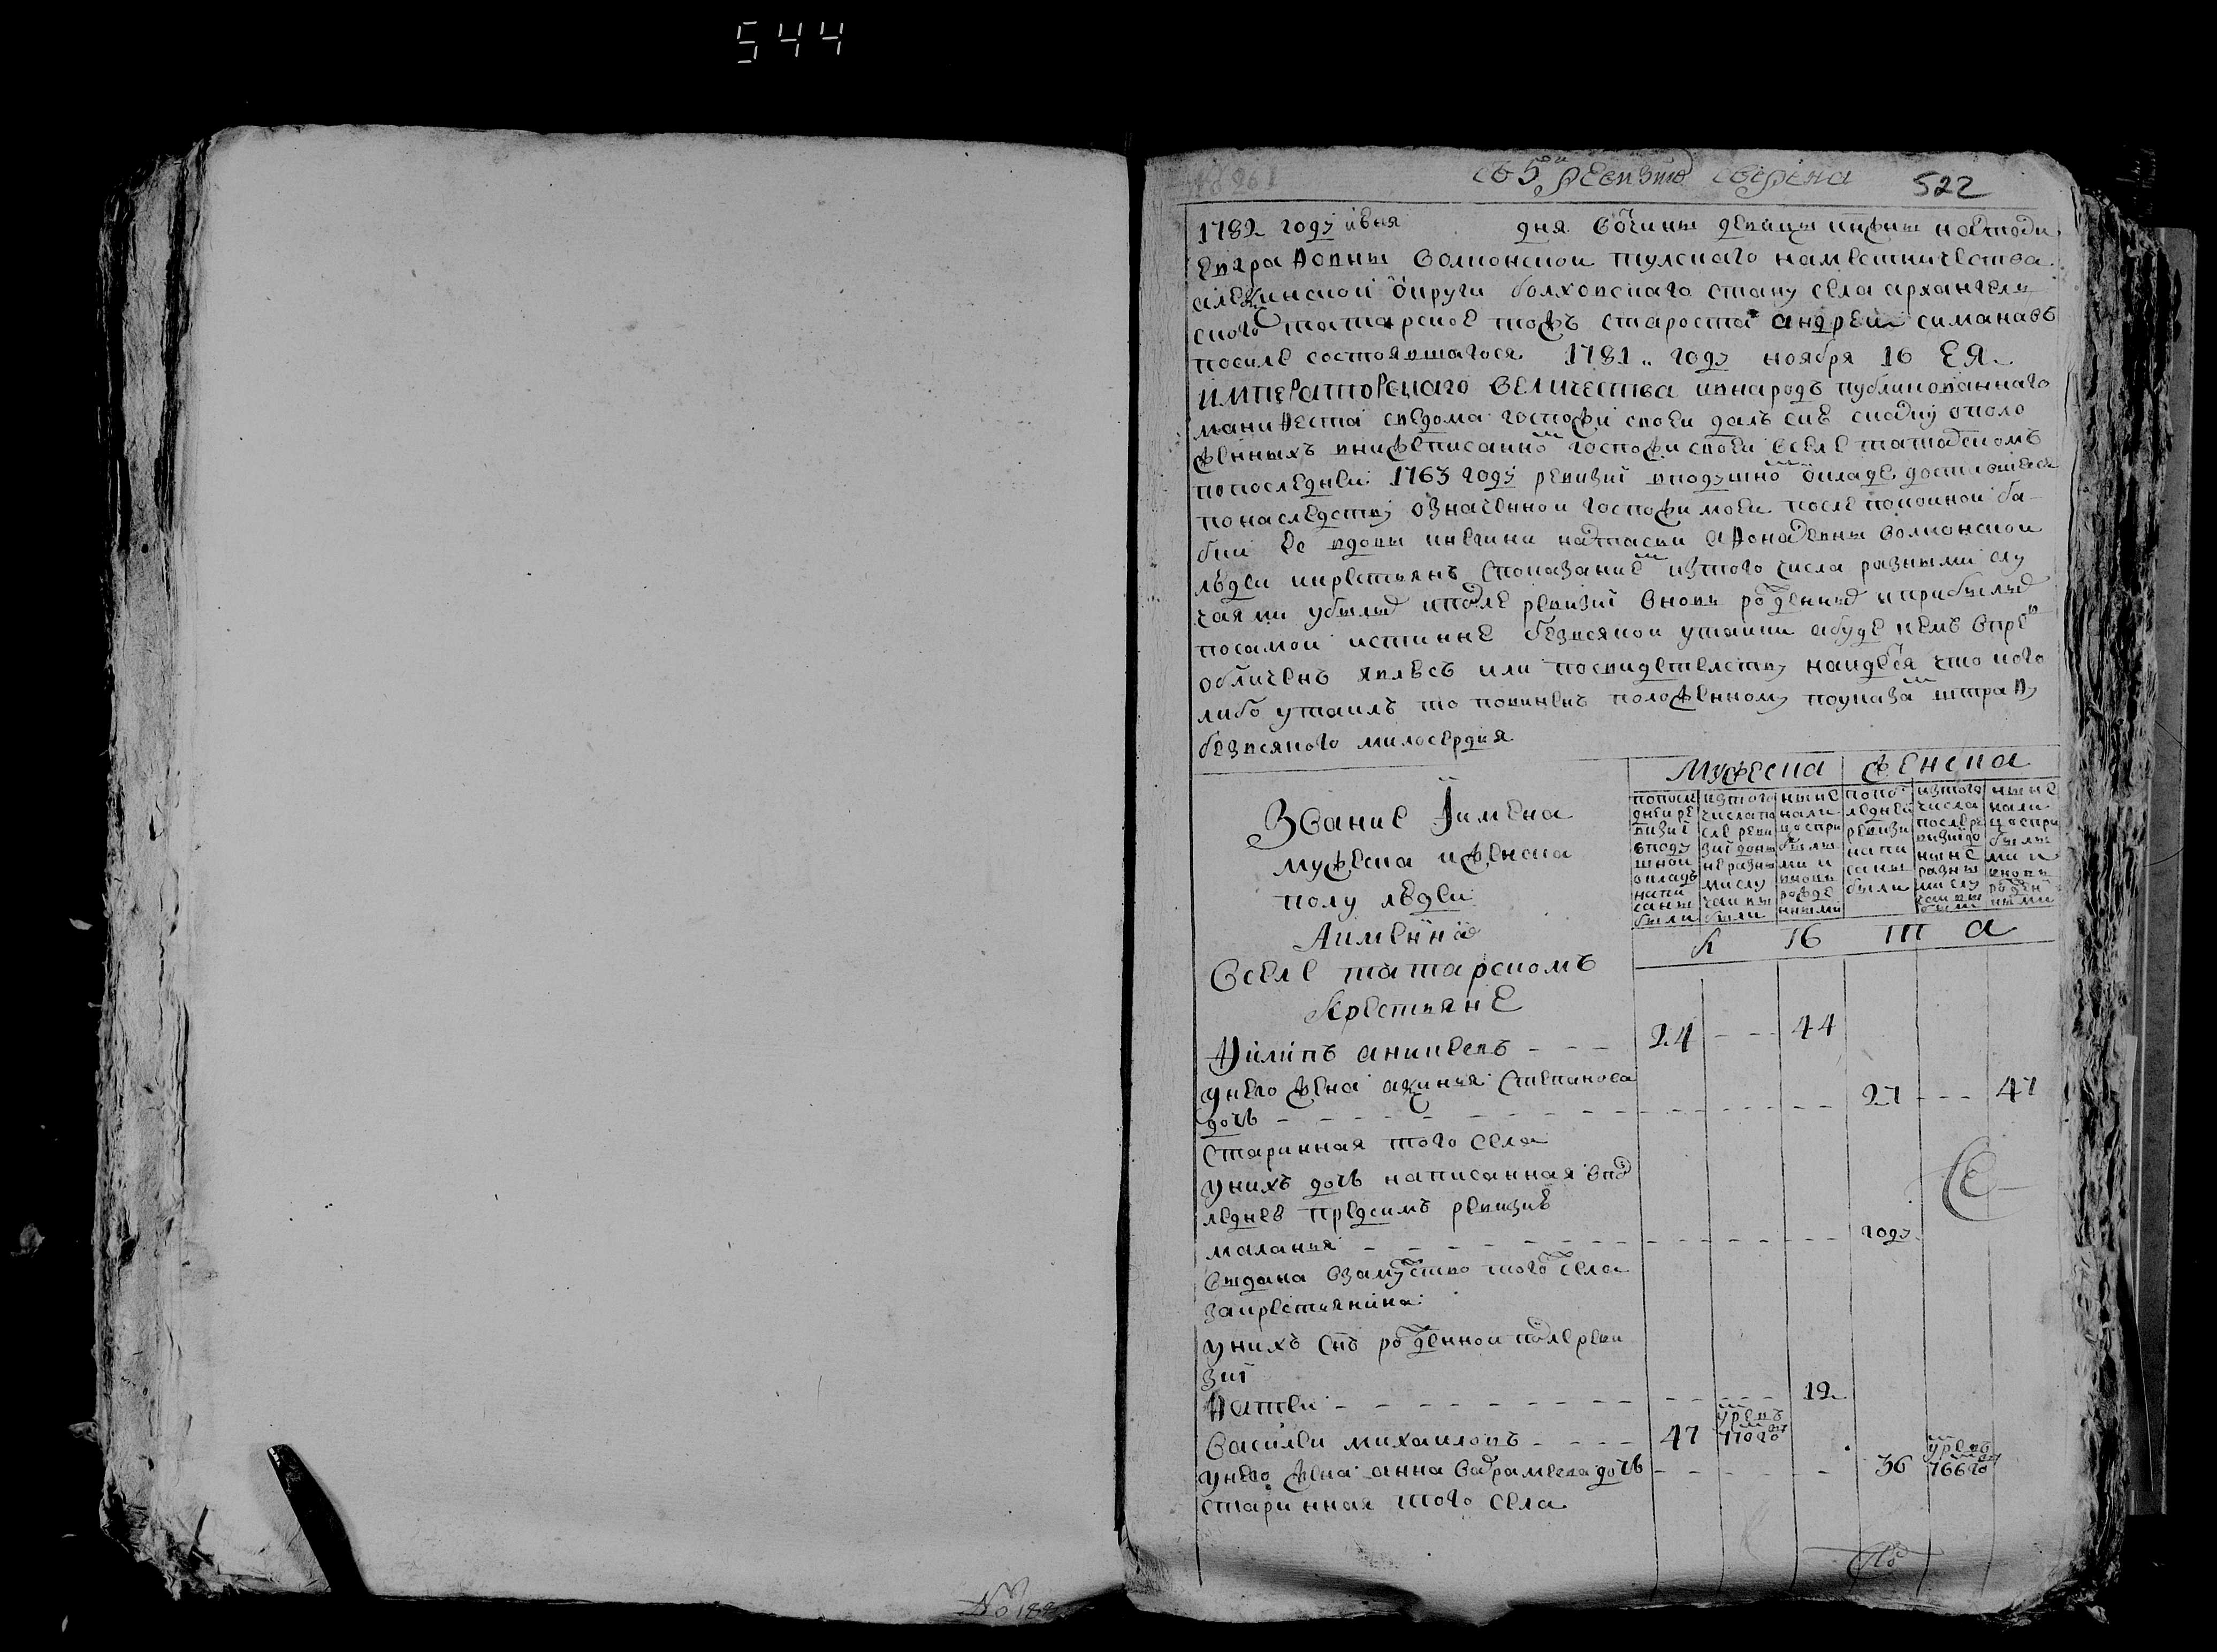 544
съ 5ой ревизию сверена 522
1782 году июня дня вотчины девицы княжны настасьи
Евграфовны волконской тулскаго наместничества
алексинской округи болховскаго стану села архангелс
кого татарское тожъ староста андрей симановъ
посиле состоявшагося 1781 году ноября 16 ЕЯ
ИМПЕРАТОРСКАГО ВЕЛИЧЕСТВА внародъ публикованнаго
манифеста сведома госпожи своей далъ сию скаску о поло
женныхъ внижеписанной госпожи своей в селе татарскомъ
попоследней 1763 году ревизии вподушной окладе доставшееся
понаследству означенной госпожи моей после покойной ба
бки ее вдовы княгини настасьи афонасевны волконской
людей икрестьянъ споказаниемъ изтого числа разными слу
чаями убылыхъ ипосле ревизии вновь рожденныхъ иприбылыхъ
посамой истинне безвсякой утайки абуде вчемъ впредь
обличенъ явлюсь или посвидетельству найдется что кого
либо утаилъ то повиненъ положенному поуказамъ штрафу
безвсякого милосердия
Мужеска женска
Звание Iимена
мужеска иженска
полу людей
Аименно
попоследней ревизии вподушной окладъ написаны были
изтого числа после ревизии доныне разными случаи выбыли
ныне налицо сприбылыми и вновь рожденными
попоследней ревизи написаны были
изтого числа после ревизии доныне разными случаи выбыли
ныне налицо сприбылыми и вновь рожденными
Л ѣ т а
Вселе татарскомъ
Крестьяне
Филипъ аникеевъ - - - 24 - - 44
унего жена аксинья степанова
дочь - - - 27 - - 47
старинная того села
унихъ дочь написанная впос
леднею предсимъ ревизию
маланья - - - году
выдана взамужство тогожъ села
закрестьянина
унихъ сынъ рожденной после реви
зии
Фатей - - - 12
василей михайловъ - - - 47 умре въ 770 году
унего жена анна абрамова дочь - - - 36 умре въ 766 году
старинная того села